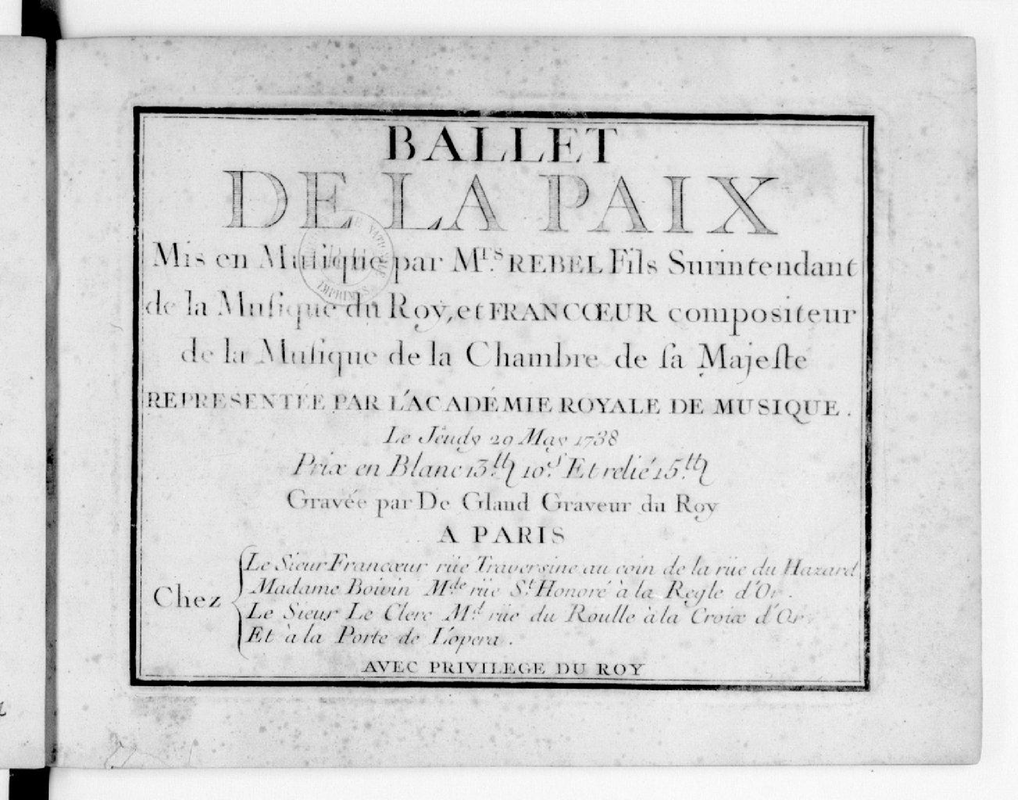 BALLET
DE LA PAIX
Mis en Muſique par M.rs REBEL Fils Surintendant
de la Muſique du Roy, et FRANCŒUR compositeur
de la Muſique de la Chambre de ſa Majeſté
REPRESENTÉE PAR L'ACADÉMIE ROYALE DE MUSIQUE.
Le Jeudy 29 May 1738
Prix en Blanc 13.tt 10.s Et relié 15.tt
Gravée par De Gland Graveur du Roy
A PARIS
Chez
Le Sieur Francœur rüe Traversine au coin de la rüe du Hazard
Madame Boivin M.de rüe S.t Honoré à la Regle d'Or.
Le Sieur Le Clerc M.d rüe du Roulle à la Croix d'Or
Et à la Porte de L'opera.
AVEC PRIVILEGE DU ROY